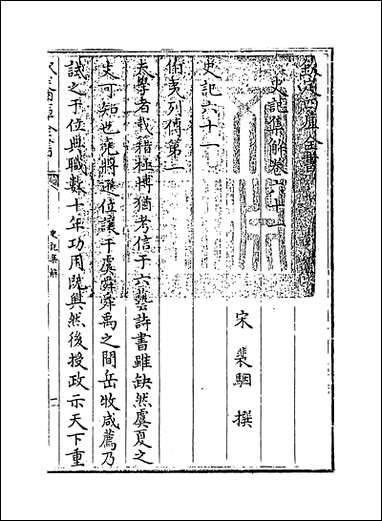 欽定四庫全書
史記集解卷六十一
宋 裴駰 撰
史記六十一
伯夷列傳第一
夫學者載籍極博猶考信于六藝詩書雖缺然虞夏之
文可知也堯將遜位讓于虞舜舜禹之間岳牧咸薦乃
試之于位典職數十年功用既興然後授政示天下重
史記集解
一